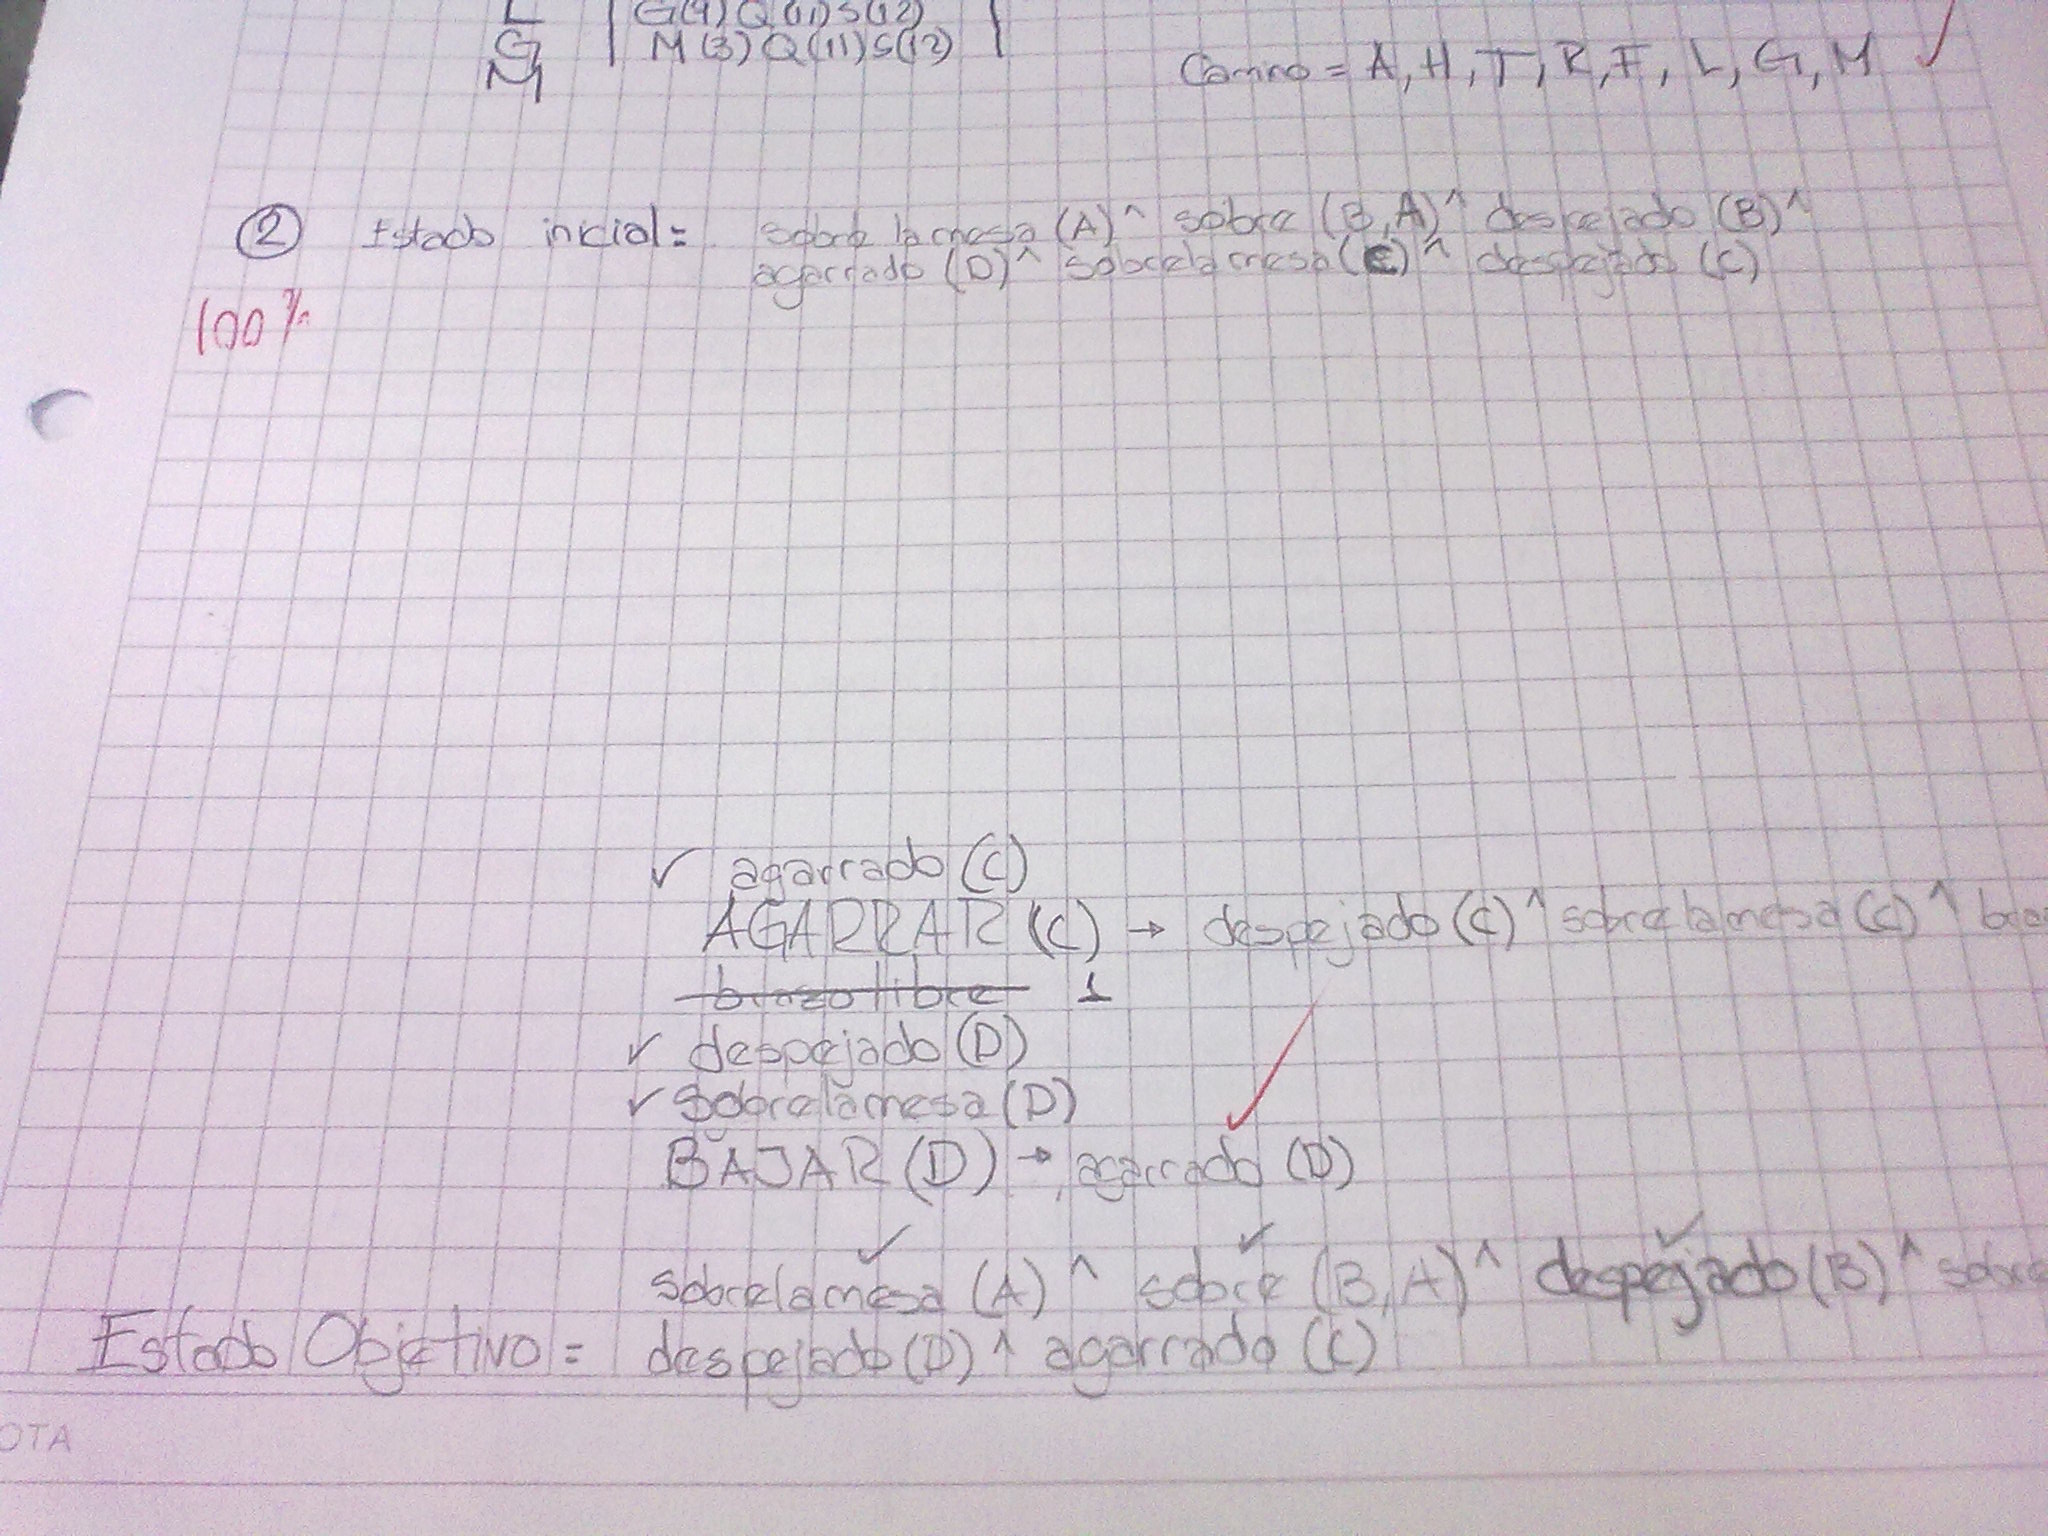 L G(4) Q(11) S(12)
G M(3) Q(11) S(12)
M
Camino = A, H, T, R, F, L, G, M
2 Estado inicial = sobrelamesa (A) ^ sobre (B,A) ^ despejado (B) ^
agarrado (D) ^ sobrelamesa (C) ^ despejado (C)
100%
agarrado (C)
AGARRAR (C) → despejado (C) ^ sobrelamesa (C) ^
brazo libre 1
despejado (D)
sobrelamesa (D)
BAJAR (D) → agarrado (D)
sobrelamesa (A) ^ sobre (B,A) ^ despejado (B) ^ sobre
Estado Objetivo = despejado (D) ^ agarrado (C)
OTA